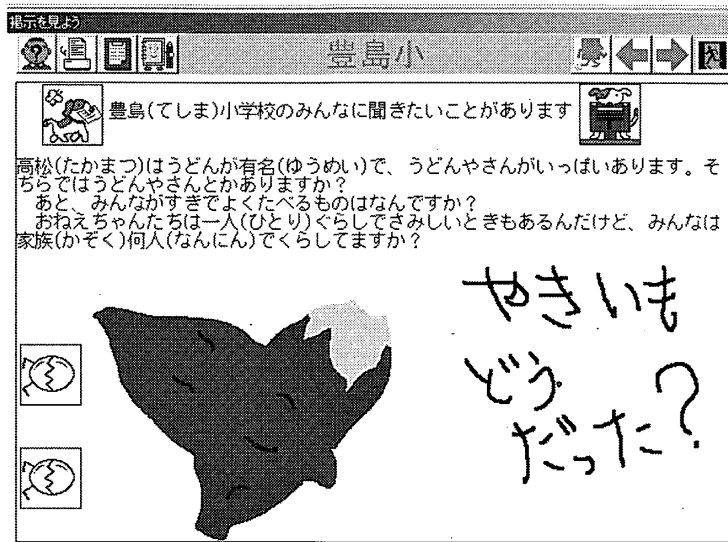 掲示を見よう
豊島小
豊島(てしま)小学校のみんなに聞きたいことがあります
高松(たかまつ)はうどんが有名(ゆうめい)で、うどんやさんがいっぱいあります。そ
ちらではうどんやさんとかありますか?
あと、みんながすきでよくたべるものはなんですか?
おねえちゃんたちは一人(ひとり)ぐらしでさみしいときもあるんだけど、みんなは
家族(かぞく)何人(なんにん)でくらしてますか?
やきいも
どう
だった?